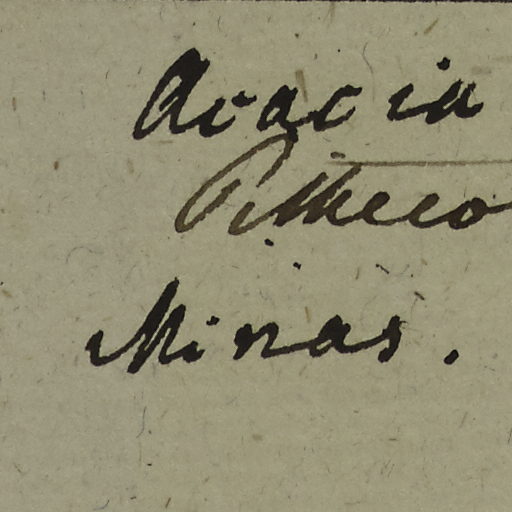 Acacia
Pitheco
Minas.